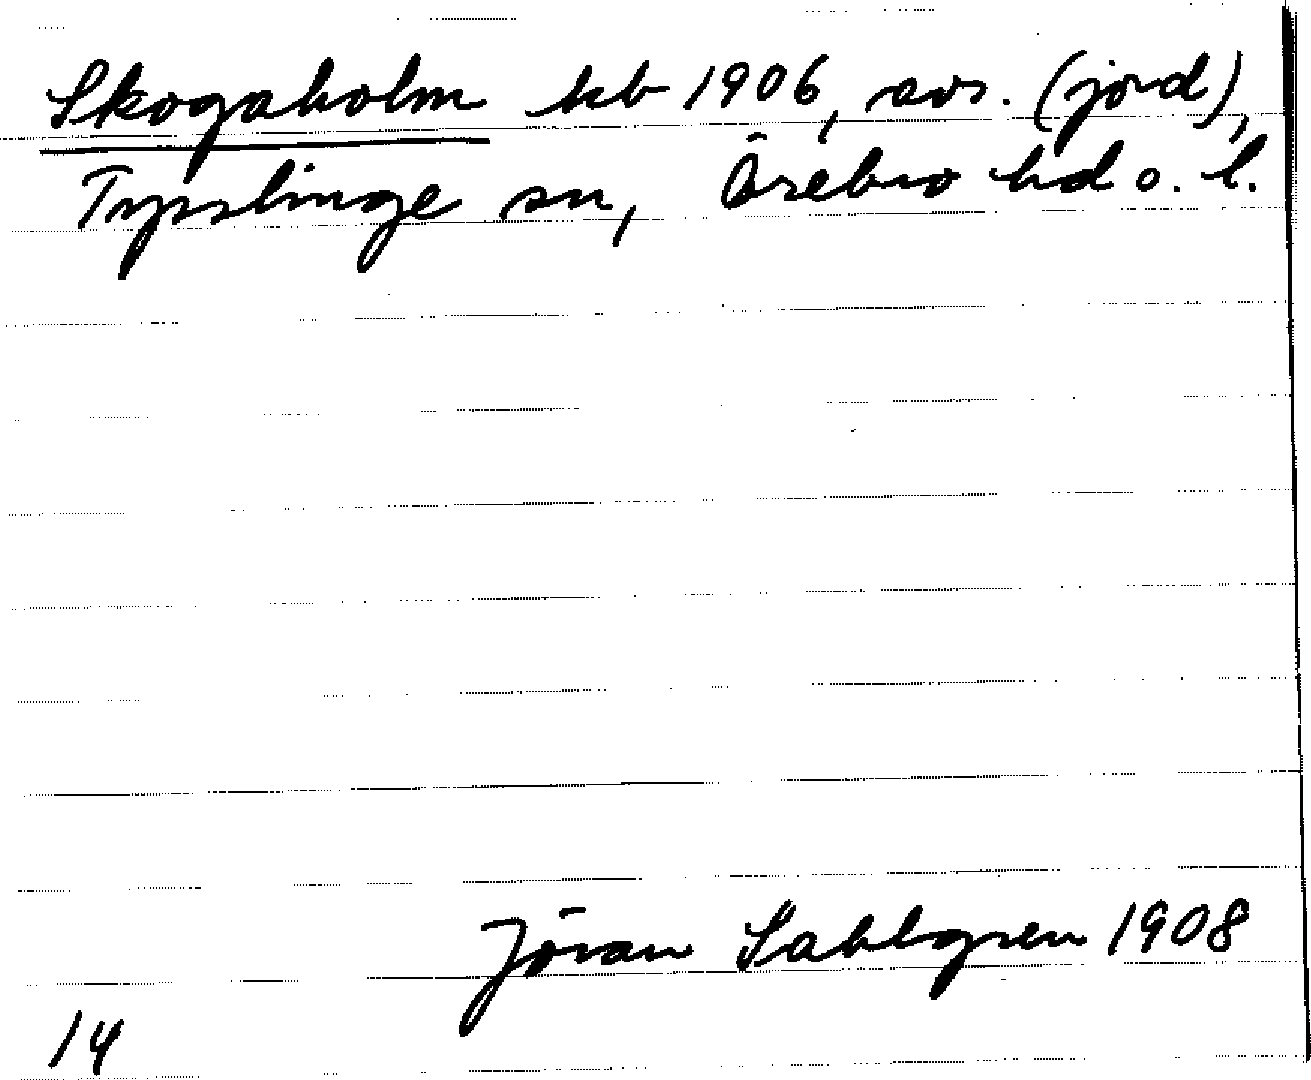 Skogaholm kb 1906, avs. (jord),
Tysslinge sn, Örebro hd o. l.
Jöran Sahlgren 1908
14